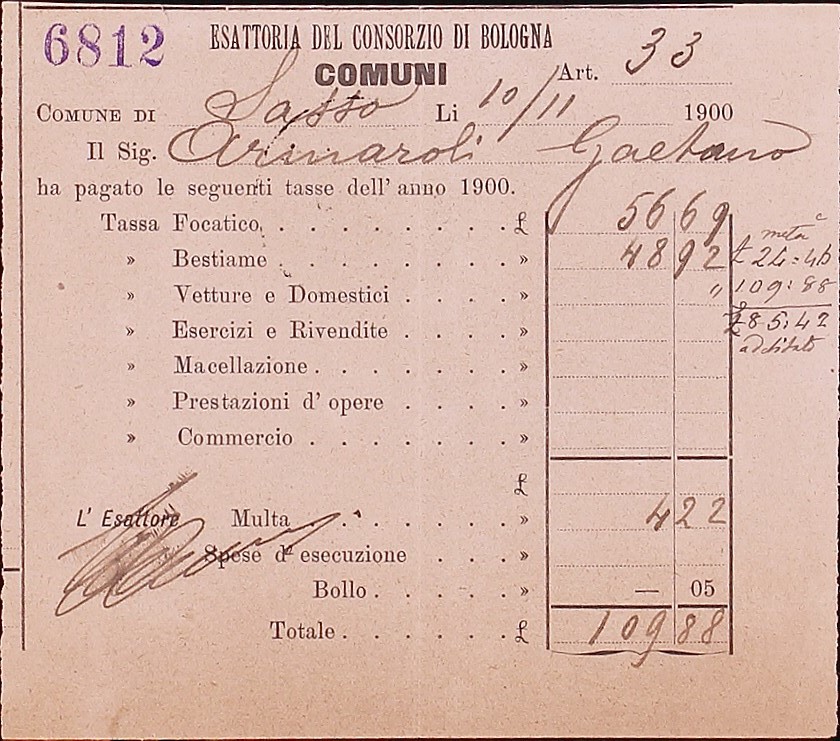 6812 ESATTORIA DEL CONSORZIO DI BOLOGNA
COMUNI Art. 33
COMUNE DI Sasso Li 10/11 1900
Il Sig. Arimaroli Gaetano
ha pagato le seguenti tasse dell' anno 1900.
Tassa Focatico. . . . . . . . . £ 56 69
» Bestiame . . . . . . . » 48 92
» Vetture e Domestici . . . . »
» Esercizi e Rivendite . . . . »
» Macellazione . . . . . . »
» Prestazioni d' opere . . . . »
» Commercio . . . . . . »
£
L' Esattore Multa . . . . . . » 4 22
Spese d' esecuzione . . . »
Bollo . . . . . » — 05
Totale . . . . . . £ 109 88
metà
£ 24:46
" 109:88
£ 85:42